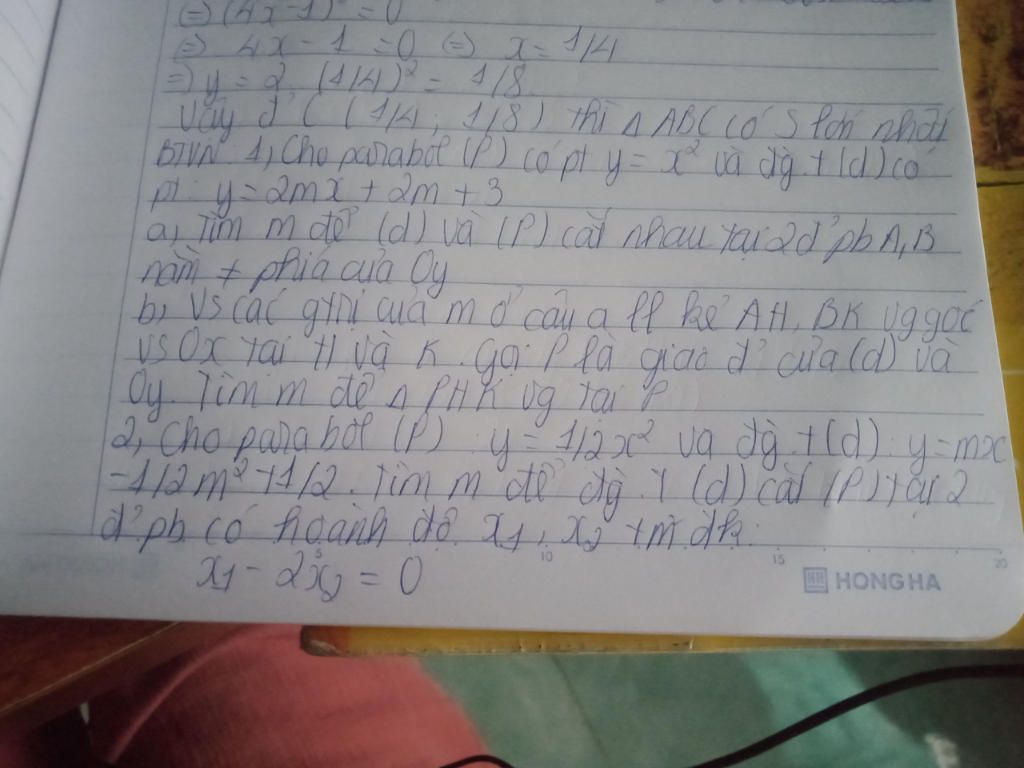 ⇔ (4x-1)² = 0
⇔ 4x - 1 = 0 ⇔ x = 1/4
⇒ y = 2. (1/4)² = 1/8.
Vậy đ' C (1/4; 1/8) thì Δ ABC có S lớn nhất
BTVN 1, Cho parabol (P) có pt y = x² và đg. t (d) có
pt: y = 2mx + 2m + 3
a, Tìm m để (d) và (P) cắt nhau tại 2 đ' pb A, B
nằm ≠ phía của Oy
b, Vs các gtrị của m ở câu a kẻ AH, BK vg góc
vs Ox tại H và K. Gọi P là giao đ' của (d) và
Oy. Tìm m để Δ PHK vg tại P
2, Cho parabol (P) : y = 1/2x² và đg. t (d): y = mx
-1/2m² + 1/2. Tìm m để đg. t (d) cắt (P) tại 2
đ' pb có hoành độ x₁, x₂ tm đk:
x₁ - 2x₂ = 0
5 10 15 20
HH HONG HA